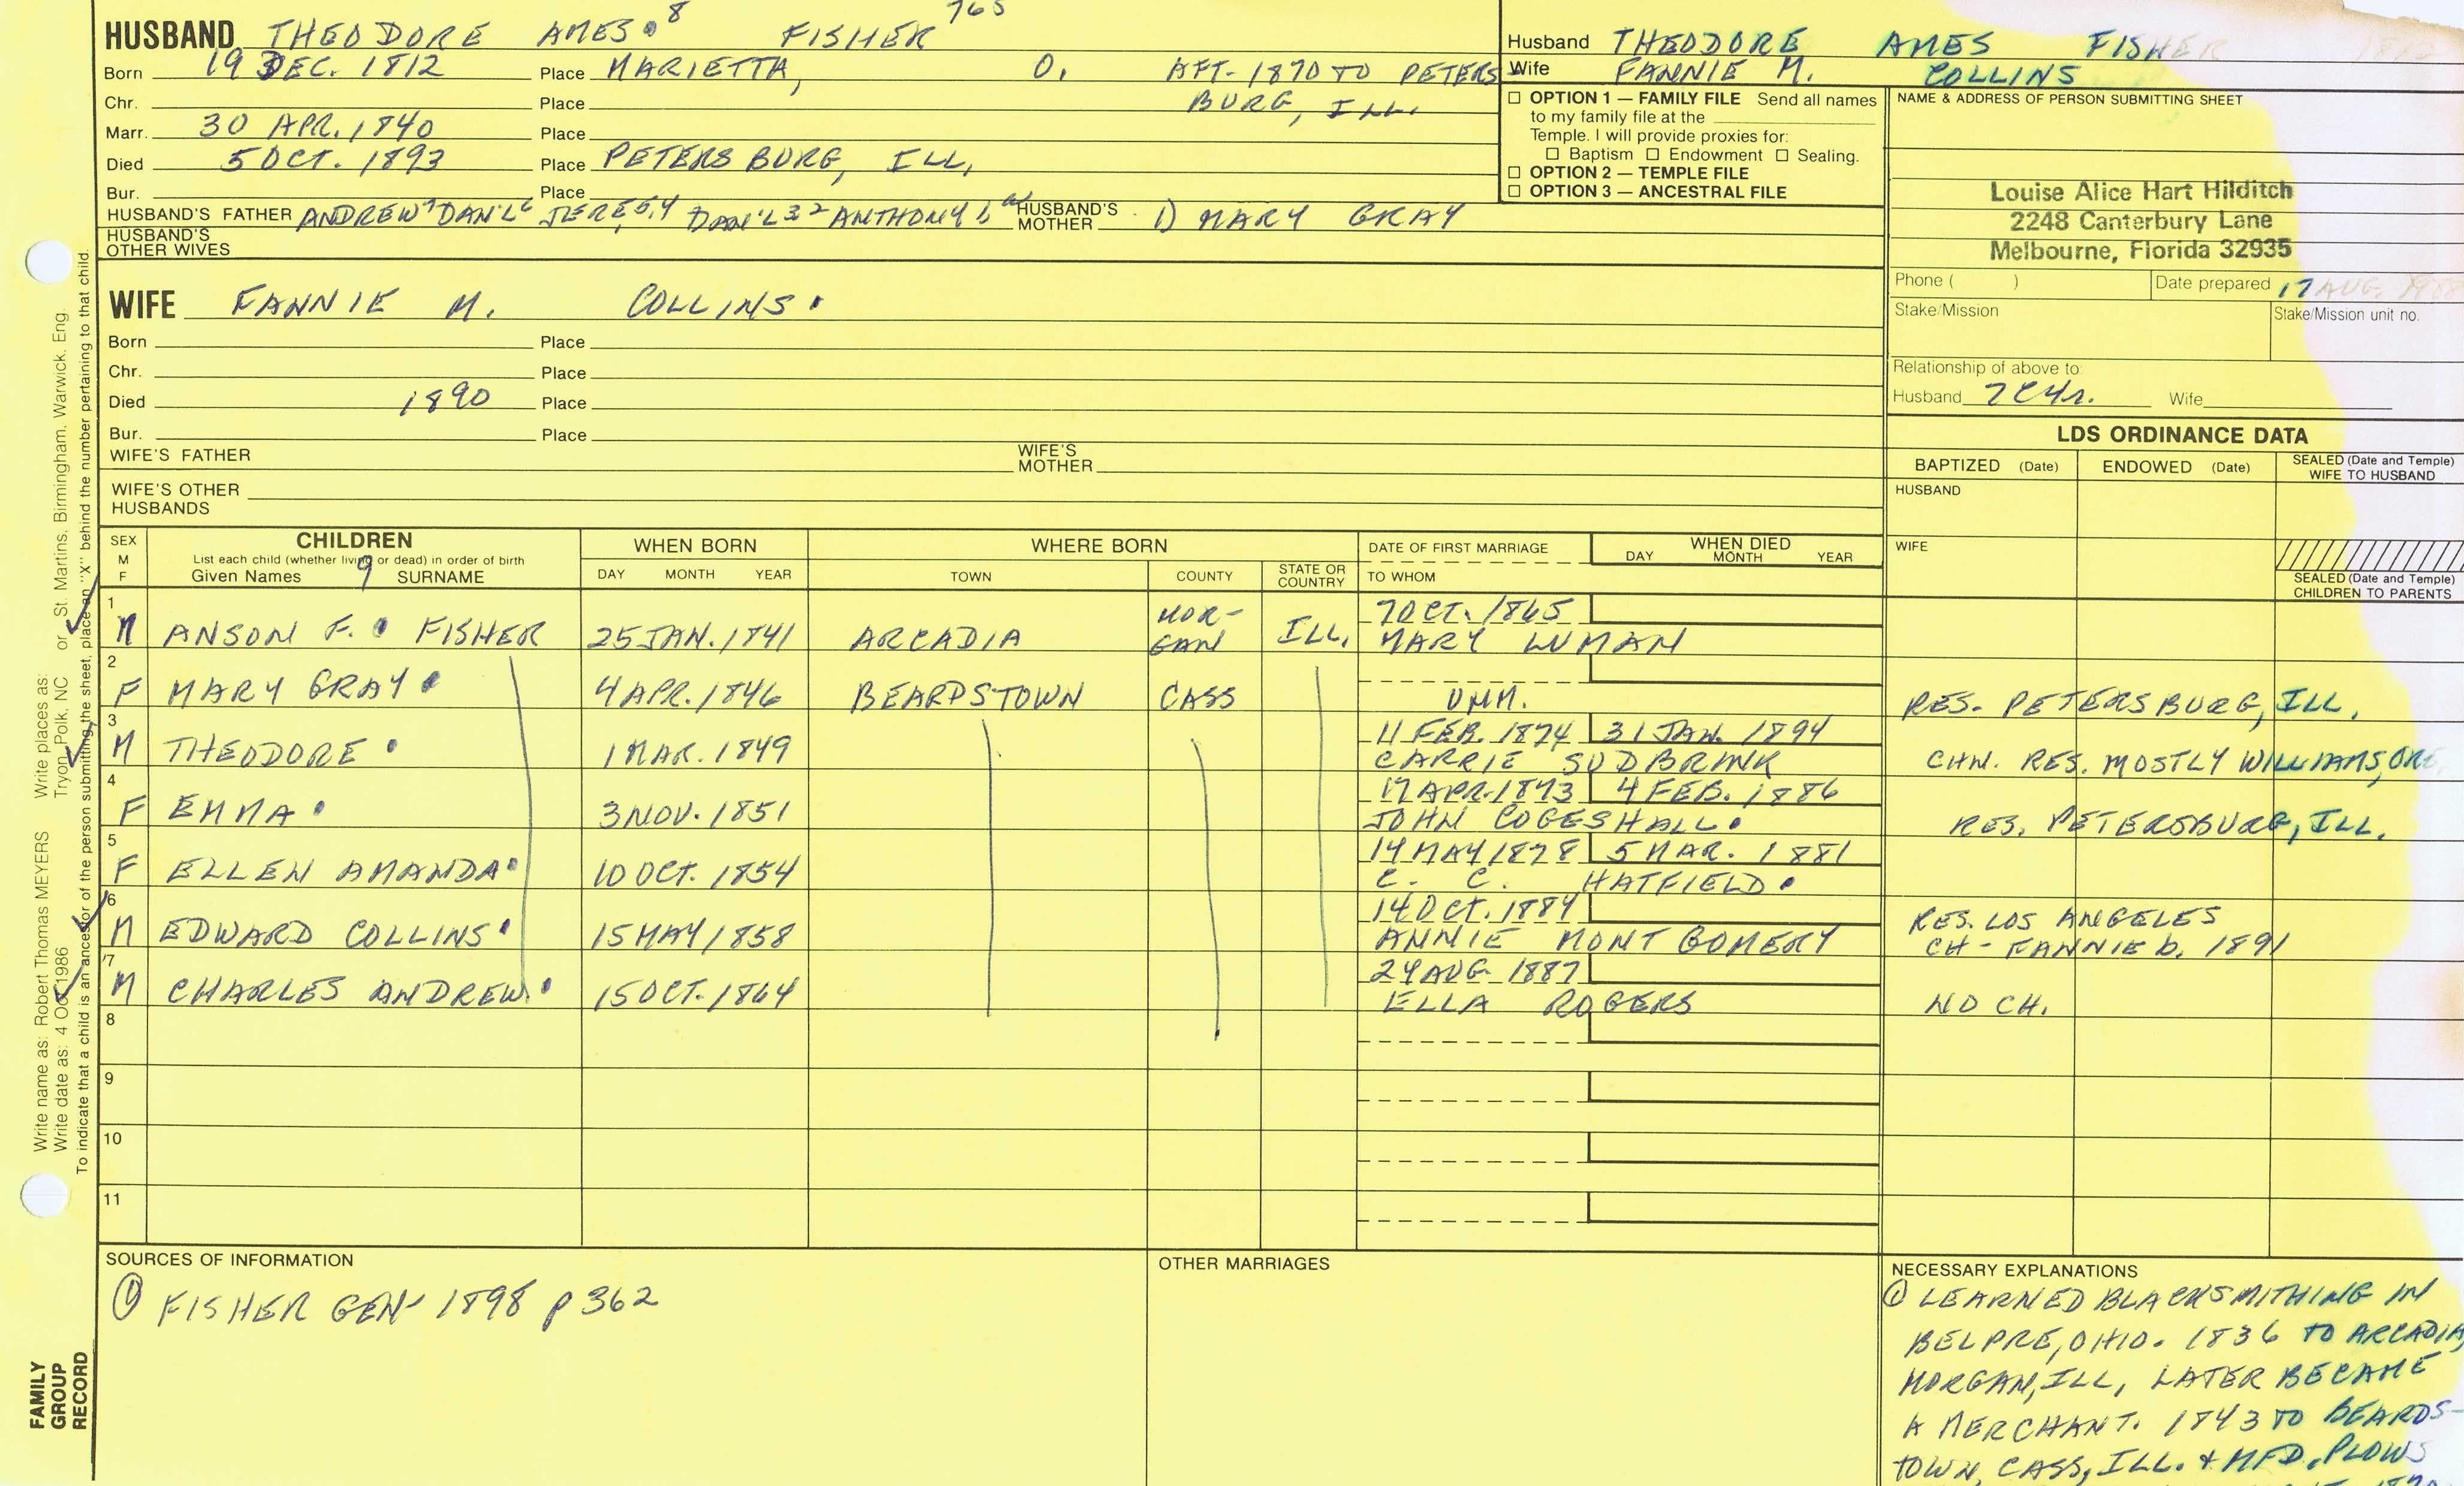 765
HUSBAND THEODORE AMES 8 FISHER
Born 19 DEC. 1812 Place MARIETTA, O. AFT. 1870 TO PETERS
Chr. Place BURG, ILL.
Marr. 30 APR. 1840 Place
Died 5 OCT. 1893 Place PETERSBURG, ILL,
Bur. Place
HUSBAND'S FATHER ANDREW7 DAN'L6 JERE,5,4 DAN'L 3 2 ANTHONY 1 HUSBAND'S MOTHER 1) MARY GRAY
HUSBAND'S OTHER WIVES
Husband THEODORE AMES FISHER 1812
Wife FANNIE M. COLLINS
OPTION 1 — FAMILY FILE Send all names
to my family file at the
Temple. I will provide proxies for:
Baptism Endowment Sealing.
OPTION 2 — TEMPLE FILE
OPTION 3 — ANCESTRAL FILE
NAME & ADDRESS OF PERSON SUBMITTING SHEET
Louise Alice Hart Hilditch
2248 Canterbury Lane
Melbourne, Florida 32935
Phone ( ) Date prepared 17 AUG. 1988
Stake/Mission Stake/Mission unit no.
Relationship of above to:
Husband 7C4r. Wife
WIFE FANNIE M. COLLINS
Born Place
Chr. Place
Died 1890 Place
Bur. Place
WIFE'S FATHER WIFE'S MOTHER
WIFE'S OTHER HUSBANDS
LDS ORDINANCE DATA
BAPTIZED (Date) ENDOWED (Date) SEALED (Date and Temple) WIFE TO HUSBAND
HUSBAND
WIFE
SEALED (Date and Temple) CHILDREN TO PARENTS
SEX M F
CHILDREN
List each child (whether living or dead) in order of birth
Given Names 9 SURNAME
WHEN BORN
DAY MONTH YEAR
WHERE BORN
TOWN COUNTY STATE OR COUNTRY
DATE OF FIRST MARRIAGE
TO WHOM
WHEN DIED
DAY MONTH YEAR
1 7 OCT. 1865
M ANSON F. FISHER 25 JAN. 1841 ARCADIA MOR-GAN ILL. MARY LUMAN
2
F MARY GRAY 4 APR. 1846 BEARDSTOWN CASS UNM. RES. PETERSBURG, ILL.
3 11 FEB. 1874 31 JAN. 1894
M THEODORE 1 MAR. 1849 CARRIE SUDBRINK CHN. RES. MOSTLY WILLIAMS, ORE
4 17 APR. 1873 4 FEB. 1886
F EMMA 3 NOV. 1851 JOHN COGESHALL RES. PETERSBURG, ILL.
5 14 MAY 1878 5 MAR. 1881
F ELLEN AMANDA 10 OCT. 1854 C. C. HATFIELD
6 14 OCT. 1884 RES. LOS ANGELES
M EDWARD COLLINS 15 MAY 1858 ANNIE MONTGOMERY CH - FANNIE b. 1891
7 24 AUG. 1887
M CHARLES ANDREW 15 OCT. 1864 ELLA ROGERS NO CH.
8
9
10
11
SOURCES OF INFORMATION
① FISHER GEN 1898 p 362
OTHER MARRIAGES
NECESSARY EXPLANATIONS
① LEARNED BLACKSMITHING IN
BELPRE, OHIO. 1836 TO ARCADIA,
MORGAN, ILL, LATER BECAME
A MERCHANT. 1843 TO BEARDS-
TOWN, CASS, ILL. & MFD. PLOWS
Write name as: Robert Thomas MEYERS Write places as: or St. Martins, Birmingham, Warwick, Eng.
Write date as: 4 Oct 1986 Tryon, Polk, NC
To indicate that a child is an ancestor of the person submitting the sheet, place an "X" behind the number pertaining to that child.
FAMILY
GROUP
RECORD